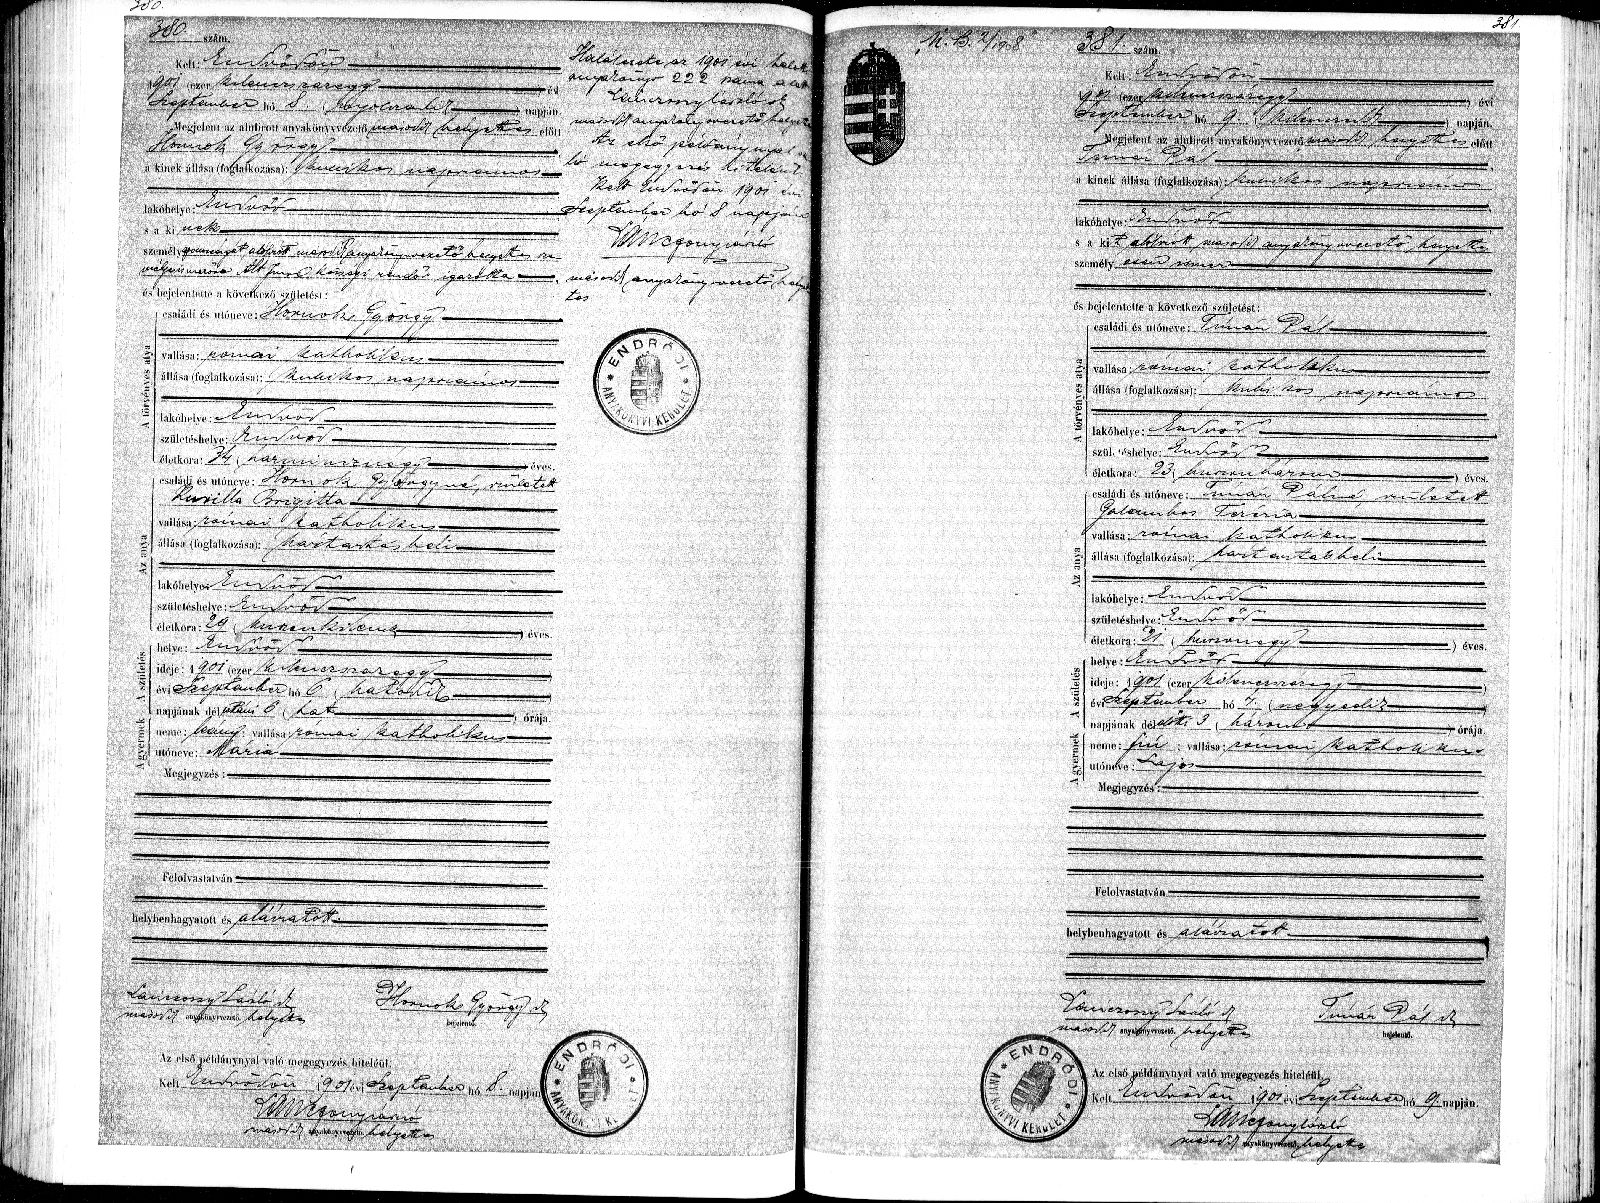 380
380 szám.
Kelt: Endrődön
1901 (ezer kilenczszázegy) évi
Szeptember hó 8 (nyolczadik) napján.
Megjelent az alulirott anyakönyvvezető másodh helyettes előtt
Hornok György
a kinek állása (foglalkozása): kubikos napszámos
lakóhelye: Endrőd
s a ki nek
személyazonosságát alulirott másodh anyakönyvvezető helyettes
igazolta
és bejelentette a következő születést:
A törvényes atya
családi és utóneve: Hornok György
vallása: római katholikus
állása (foglalkozása): kubikos napszámos
lakóhelye: Endrőd
születéshelye: Endrőd
életkora: 34 (harmincznégy) éves.
Az anya
családi és utóneve: Hornok Györgyné, született
Brigitta
vallása: római katholikus
állása (foglalkozása): háztartásbeli
lakóhelye: Endrőd
születéshelye: Endrőd
életkora: 29 (huszonkilencz) éves.
A születés
helye: Endrőd
ideje: 1901 (ezer kilenczszázegy)
évi Szeptember hó 6 (hatodik)
napjának délutáni 6 (hat) órája.
A gyermek
neme: leány; vallása: római katholikus
utóneve: Mária
Megjegyzés:
Felolvastatván
helybenhagyatott és aláiratott.
Lánczonyi László
másodh anyakönyvvezető helyettes
Hornok György
bejelentő.
Az első példánynyal való megegyezés hiteléül.
Kelt Endrődön 1901 évi Szeptember hó 8. napján
Lánczonyi László
másodh anyakönyvvezető helyettes
Halálesete az 1901 évi halotti
anyakönyv 222 száma alatt
Lánczonyi László
másodh anyakönyvvezető helyettes
Az első példánynyal va-
ló megegyezés hiteléül.
Kelt Endrődön 1901 évi
Szeptember hó 8 napján
Lánczonyi László
másodh anyakönyvvezető helyet-
tes
ENDRŐDI
ANYAKÖNYVI KERÜLET
ENDRŐDI
381
381. szám.
Kelt: Endrődön
1901 (ezer kilenczszázegy) évi
Szeptember hó 9. (kilenczedik) napján.
Megjelent az alulirott anyakönyvvezető másodh helyettes előtt
Tímár Pál
a kinek állása (foglalkozása): kubikos napszámos
lakóhelye: Endrőd
s a ki t alulirott másodh anyakönyvvezető helyettes
személyesen ismer
és bejelentette a következő születést:
A törvényes atya
családi és utóneve: Tímár Pál
vallása: római katholikus
állása (foglalkozása): kubikos napszámos
lakóhelye: Endrőd
születéshelye: Endrőd
életkora: 23 (huszonhárom) éves.
Az anya
családi és utóneve: Tímár Pálné, született
Galambos Terézia
vallása: római katholikus
állása (foglalkozása): háztartásbeli
lakóhelye: Endrőd
születéshelye: Endrőd
életkora: 21 (huszonegy) éves.
A születés
helye: Endrőd
ideje: 1901 (ezer kilenczszázegy)
évi Szeptember hó 4. (negyedik)
napjának délelőtti 3 (három) órája.
A gyermek
neme: fiú; vallása: római katholikus
utóneve: Lajos
Megjegyzés:
Felolvastatván
helybenhagyatott és aláiratott.
Lánczonyi László
másodh anyakönyvvezető helyettes
Tímár Pál
bejelentő.
Az első példánynyal való megegyezés hiteléül.
Kelt Endrődön 1901 évi Szeptember hó 9. napján.
Lánczonyi László
másodh anyakönyvvezető helyettes
ENDRŐDI
ANYAKÖNYVI KERÜLET